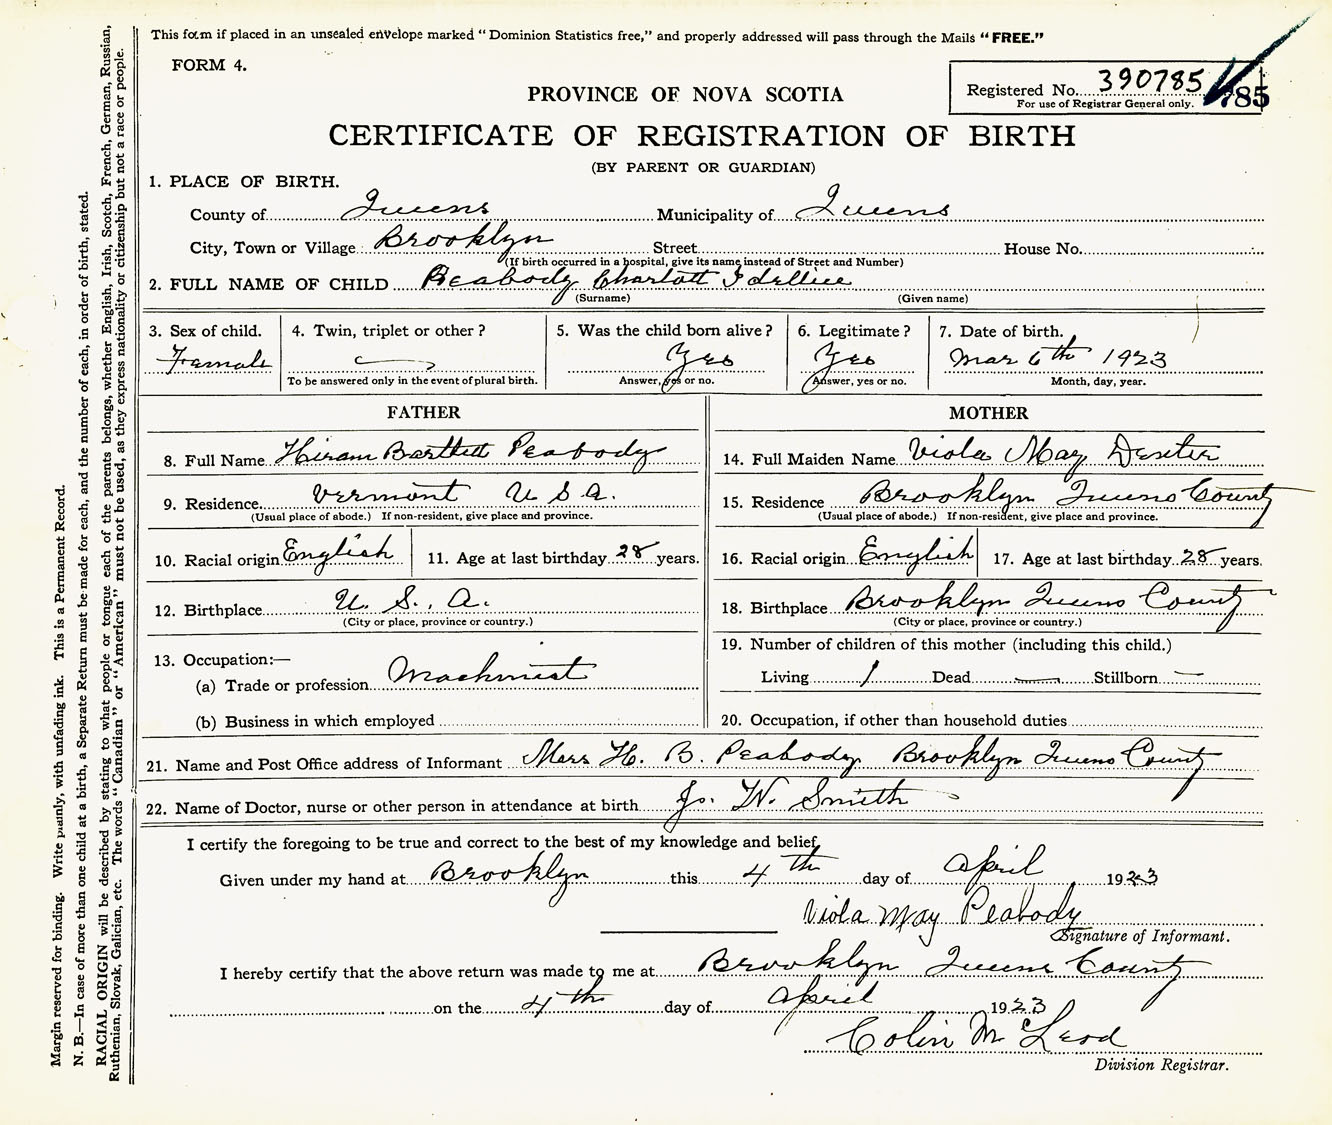 This form if placed in an unsealed envelope marked “Dominion Statistics free,” and properly addressed will pass through the Mails “FREE.”
FORM 4.
Registered No. 390785 785
For use of Registrar General only.
PROVINCE OF NOVA SCOTIA
CERTIFICATE OF REGISTRATION OF BIRTH
(BY PARENT OR GUARDIAN)
1. PLACE OF BIRTH.
County of Queens Municipality of Queens
City, Town or Village Brooklyn Street House No.
(If birth occurred in a hospital, give its name instead of Street and Number)
2. FULL NAME OF CHILD Peabody Charlott Idellice
(Surname) (Given name)
3. Sex of child. 4. Twin, triplet or other? 5. Was the child born alive? 6. Legitimate? 7. Date of birth.
Female Yes Yes Mar 6th 1923
To be answered only in the event of plural birth. Answer, yes or no. Answer, yes or no. Month, day, year.
FATHER MOTHER
8. Full Name Hiram Bartlett Peabody 14. Full Maiden Name Viola May Dexter
9. Residence Vermont U S A. 15. Residence Brooklyn Queens County
(Usual place of abode.) If non-resident, give place and province. (Usual place of abode.) If non-resident, give place and province.
10. Racial origin English 11. Age at last birthday 28 years. 16. Racial origin English 17. Age at last birthday 28 years.
12. Birthplace U. S. A. 18. Birthplace Brooklyn Queens County
(City or place, province or country.) (City or place, province or country.)
19. Number of children of this mother (including this child.)
13. Occupation:—
(a) Trade or profession Machinist Living 1 Dead — Stillborn —
(b) Business in which employed 20. Occupation, if other than household duties
21. Name and Post Office address of Informant Mrs H. B. Peabody Brooklyn Queens County
22. Name of Doctor, nurse or other person in attendance at birth W. Smith
I certify the foregoing to be true and correct to the best of my knowledge and belief,
Given under my hand at Brooklyn this 4th day of April 1923
Viola May Peabody
Signature of Informant.
I hereby certify that the above return was made to me at Brooklyn Queens County
on the 4th day of April 1923
Colin McLeod
Division Registrar.
Margin reserved for binding. Write plainly, with unfading ink. This is a Permanent Record.
N. B.—In case of more than one child at a birth, a Separate Return must be made for each, and the number of each, in order of birth, stated.
RACIAL ORIGIN will be described by stating to what people or tongue each of the parents belongs, whether English, Irish, Scotch, French, German, Russian,
Ruthenian, Slovak, Galician, etc. The words “Canadian” or “American” must not be used, as they express nationality or citizenship but not a race or people.